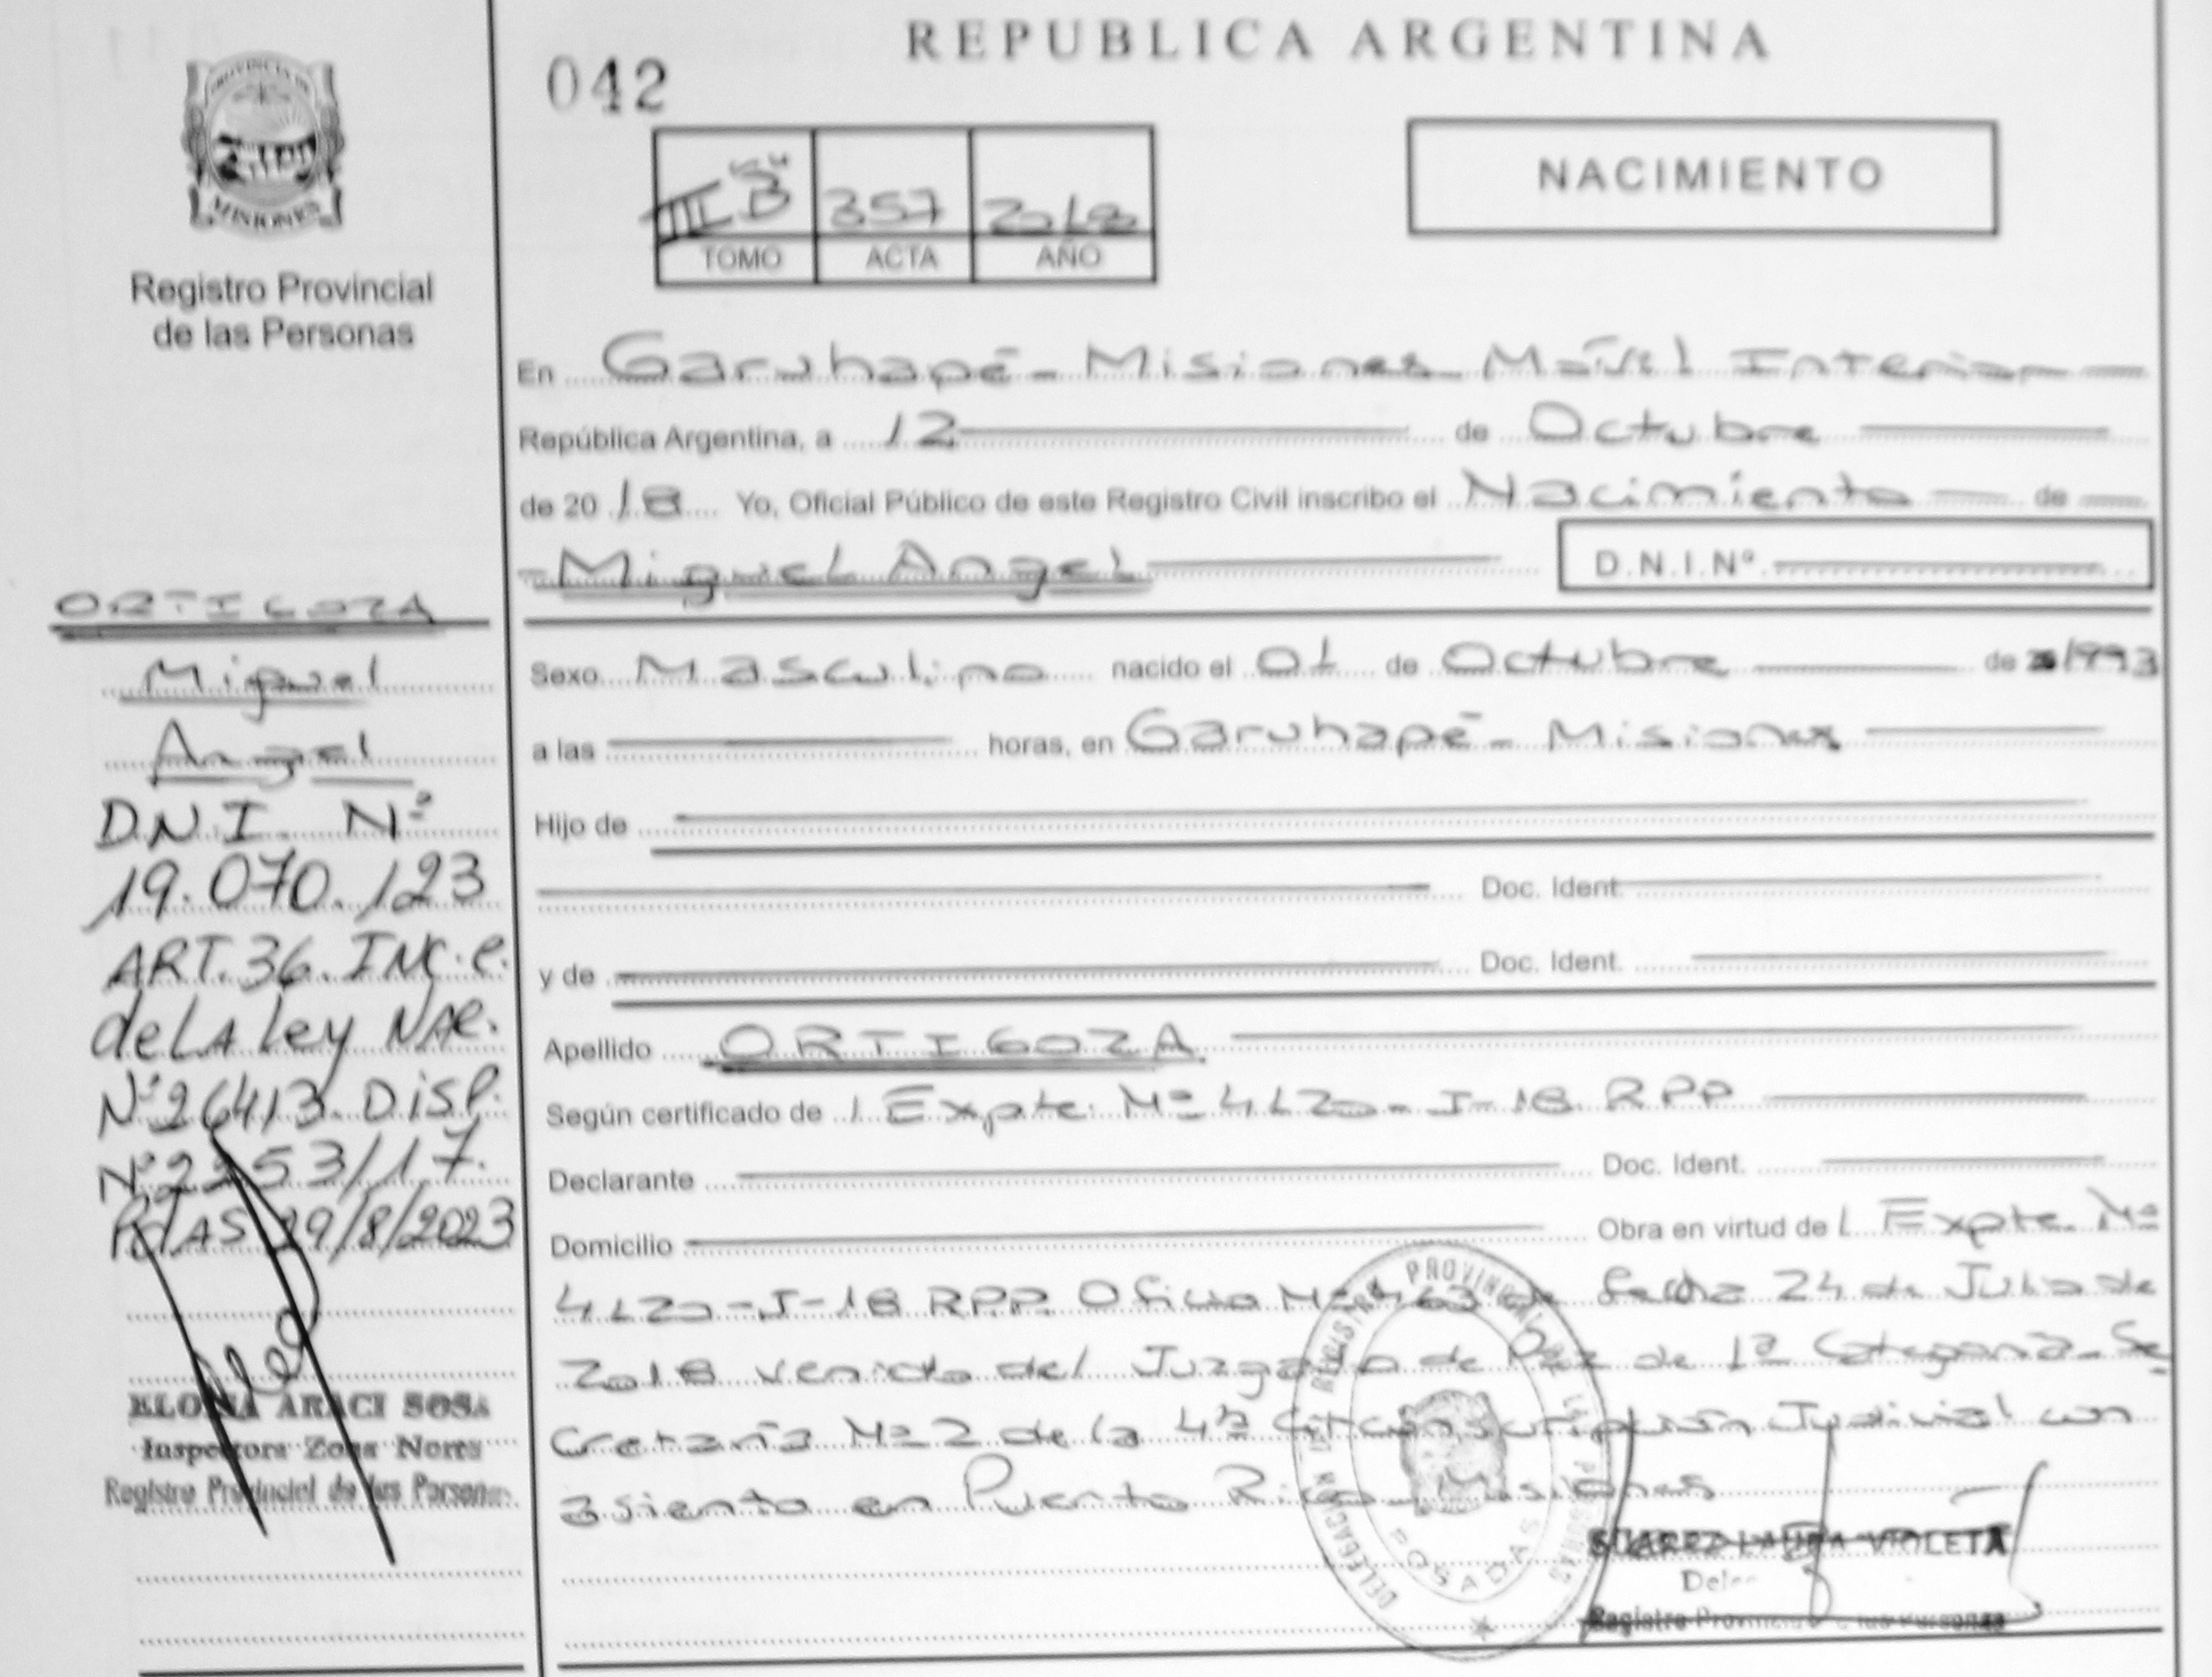 REPUBLICA ARGENTINA
042
PROVINCIA DE
MISIONES
Registro Provincial
de las Personas
III B 357 2018
TOMO ACTA AÑO
NACIMIENTO
En Garuhapé - Misiones Móvil Interior
República Argentina, a 12 de Octubre
de 2018 Yo, Oficial Público de este Registro Civil inscribo el Nacimiento de
Miguel Angel D.N.I.Nº
Sexo Masculino nacido el 01 de Octubre de 1993
a las horas, en Garuhapé - Misiones
Hijo de
Doc. Ident.
y de Doc. Ident.
Apellido ORTIGOZA
Según certificado de Expte. Nº 4120-I-18 RPP
Declarante Doc. Ident.
Domicilio Obra en virtud de Expte. Nº
4120-I-18 RPP. Oficio Nº 463 de fecha 24 de Julio de
2018 venido del Juzgado de Paz de 1ª Categoría - Se
cretaría Nº 2 de la 4ª Circunscripción Judicial con
asiento en Puerto Rico - Misiones
ORTIGOZA
Miguel
Angel
D.N.I. Nº
19.070.123
ART. 36. INC. e.
de LA Ley NAC.
Nº 26413. DISP.
Nº 2253/17.
PDAS 29/8/2023
ARACI SOSA
Inspectora Zona Norte
Registro Provincial de las Personas
REGISTRO PROVINCIAL DE LAS PERSONAS
DELEGACION
POSADAS
SUAREZ LAURA VIOLETA
Registro Provincial de las Personas